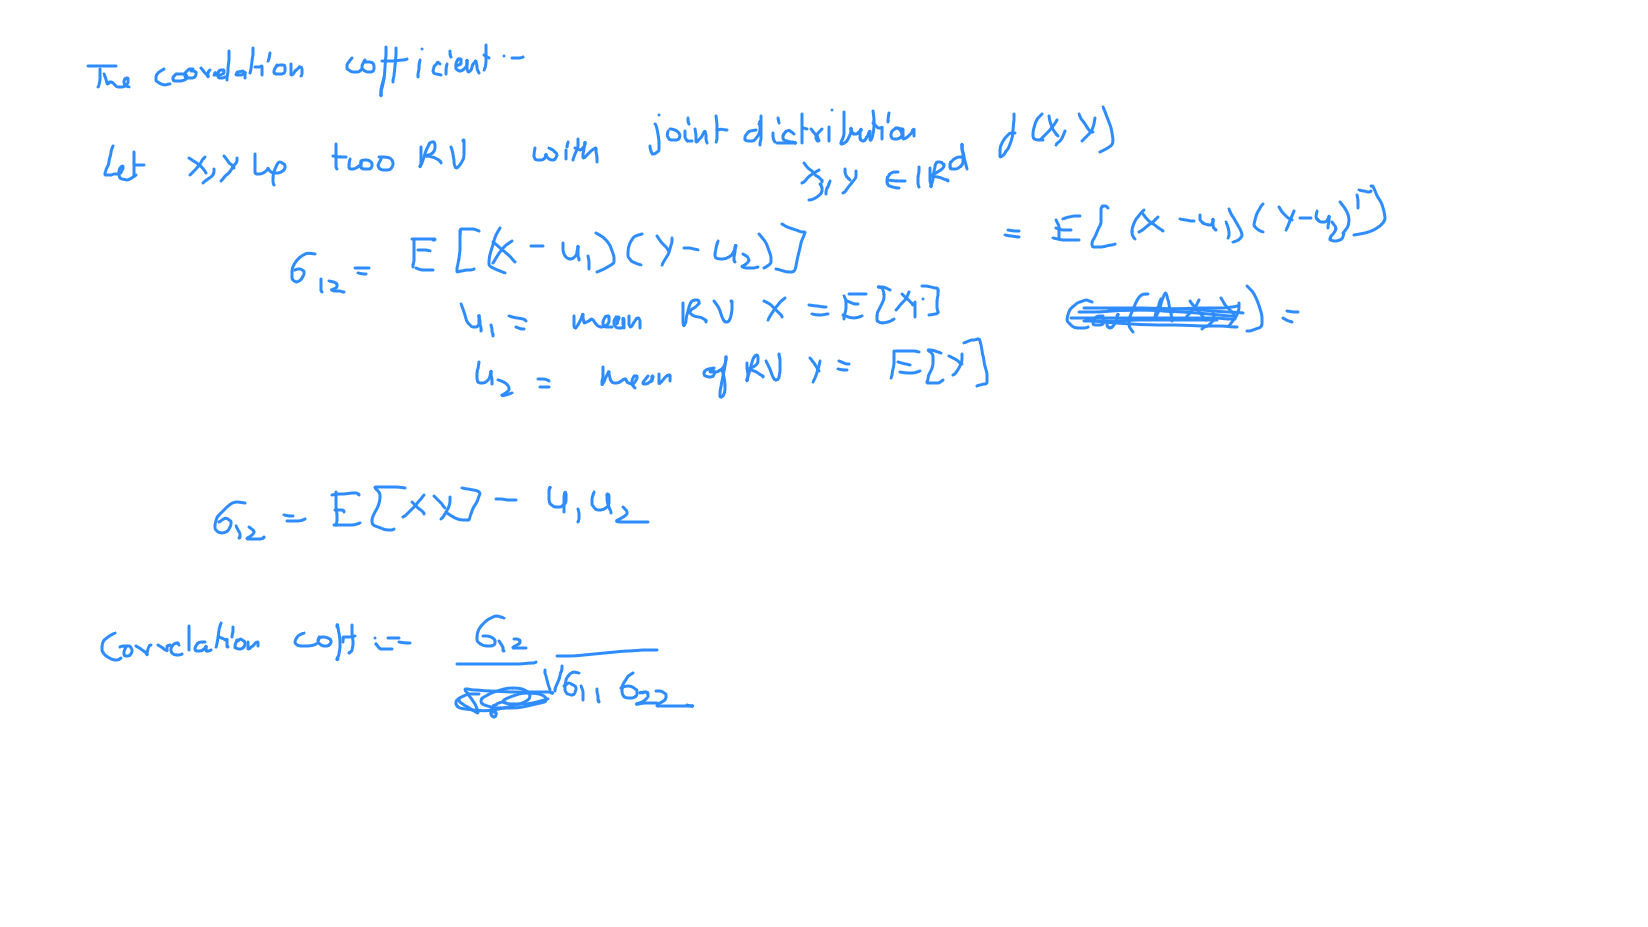 The coorelation cofficient :-
Let X, Y be two RV with joint distribution f(X, Y)
X, Y ∈ IR^d
σ₁₂ = E[(X - u₁)(Y - u₂)] = E[(X - u₁)(Y - u₂)^T]
u₁ = mean RV X = E[X]
u₂ = mean of RV Y = E[Y]
σ₁₂ = E[XY] - u₁u₂
Correlation coff :- σ₁₂ / √σ₁₁ σ₂₂